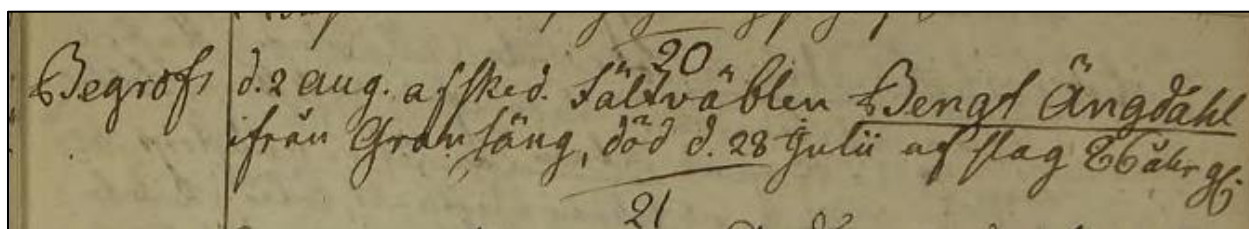 20
Begrofs d. 2 aug. afsked. Fältväblen Bengt Ängdahl
ifrån Gransäng, död d. 28 Julii af slag 66 åhr gl.
21